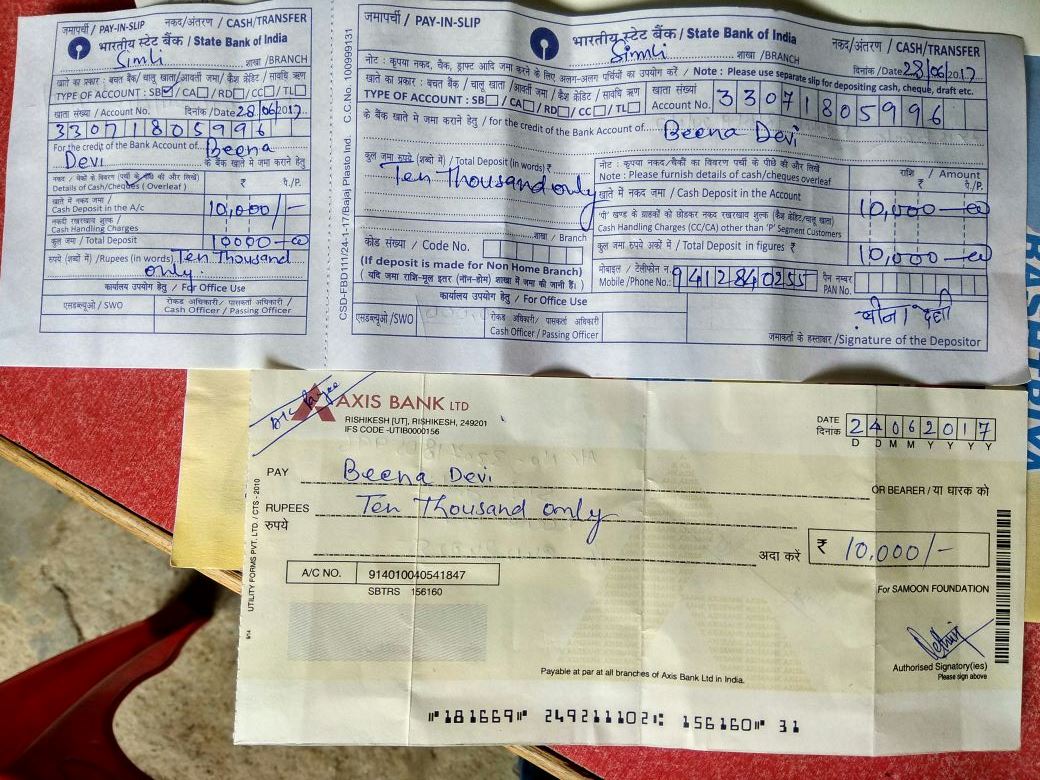 जमापर्ची / PAY-IN-SLIP नकद/अंतरण / CASH/TRANSFER
भारतीय स्टेट बैंक / State Bank of India
Simli शाखा /BRANCH
खाते का प्रकार : बचत बैंक/ चालू खाता/आवर्ती जमा/ कैश क्रेडिट/ सावधि ऋण
TYPE OF ACCOUNT : SB CA RD CC TL
खाता संख्या /Account No. दिनांक /Date 28/06/2017
33071805996
For the credit of the Bank Account of Beena
Devi के बैंक खाते में जमा कराने हेतु
नकद / चेकों के विवरण (पर्ची के पीछे की ओर लिखें) ₹ पै./P.
Details of Cash/Cheques (Overleaf)
खाते में नकद जमा /
Cash Deposit in the A/c 10,000/-
नकदी रखरखाव शुल्क /
Cash Handling Charges
कुल जमा /Total Deposit 10000-00
रुपये (शब्दों में) /Rupees (in words) Ten Thousand
only.
कार्यालय उपयोग हेतु / For Office Use
एसडब्ल्यूओ / SWO रोकड़ अधिकारी/ पासकर्ता अधिकारी /
Cash Officer / Passing Officer
CSD-FBD111/24-1-17/Bajaj Plasto Ind. C.C.No. 100999131
जमापर्ची / PAY-IN-SLIP
भारतीय स्टेट बैंक / State Bank of India नकद/अंतरण / CASH/TRANSFER
Simli शाखा /BRANCH दिनांक /Date 28/06/2017
नोट : कृपया नकद, चैक, ड्राफ्ट आदि जमा करने के लिए अलग-अलग पर्चियों का उपयोग करें / Note : Please use separate slip for depositing cash, cheque, draft etc.
खाते का प्रकार : बचत बैंक/ चालू खाता/ आवर्ती जमा/ कैश क्रेडिट/ सावधि ऋण खाता संख्या
TYPE OF ACCOUNT : SB / CA RD / CC / TL Account No. 33071805996
के बैंक खाते में जमा कराने हेतु / for the credit of the Bank Account of. Beena Devi
कुल जमा रुपये (शब्दों में) / Total Deposit (in words) ₹
Ten Thousand only
नोट : कृपया नकद/चैकों का विवरण पर्ची के पीछे की ओर लिखें राशि / Amount
Note : Please furnish details of cash/cheques overleaf ₹ पै./P.
खाते में नकद जमा / Cash Deposit in the Account 10,000-00
'पी' खण्ड के ग्राहकों को छोड़कर नकद रखरखाव शुल्क (कैश क्रेडिट/चालू खाता)
Cash Handling Charges (CC/CA) other than 'P' Segment Customers
शाखा / Branch
कोड संख्या / Code No.
कुल जमा रुपये अंकों में / Total Deposit in figures ₹ 10,000-00
(If deposit is made for Non Home Branch)
( यदि जमा राशि-मूल इतर (नॉन-होम) शाखा में जमा की जानी हैं। )
मोबाइल / टेलीफोन न. पैन नम्बर
Mobile /Phone No.: 9412840255 PAN No.
कार्यालय उपयोग हेतु / For Office Use
एसडब्ल्यूओ /SWO रोकड़ अधिकारी/ पासकर्ता अधिकारी
Cash Officer /Passing Officer
बीना देवी
जमाकर्ता के हस्ताक्षर /Signature of the Depositor
A/C Payee
AXIS BANK LTD
RISHIKESH [UT], RISHIKESH, 249201
IFS CODE -UTIB0000156
DATE
दिनांक 24062017
D D M M Y Y Y Y
PAY Beena Devi OR BEARER / या धारक को
RUPEES Ten Thousand only
रुपये अदा करें ₹ 10,000/-
A/C NO. 914010040541847
SBTRS 156160
For SAMOON FOUNDATION
Authorised Signatory(ies)
Please sign above
Payable at par at all branches of Axis Bank Ltd in India.
UTILITY FORMS PVT. LTD. / CTS - 2010
9/14
"181669" 249211102: 156160" 31